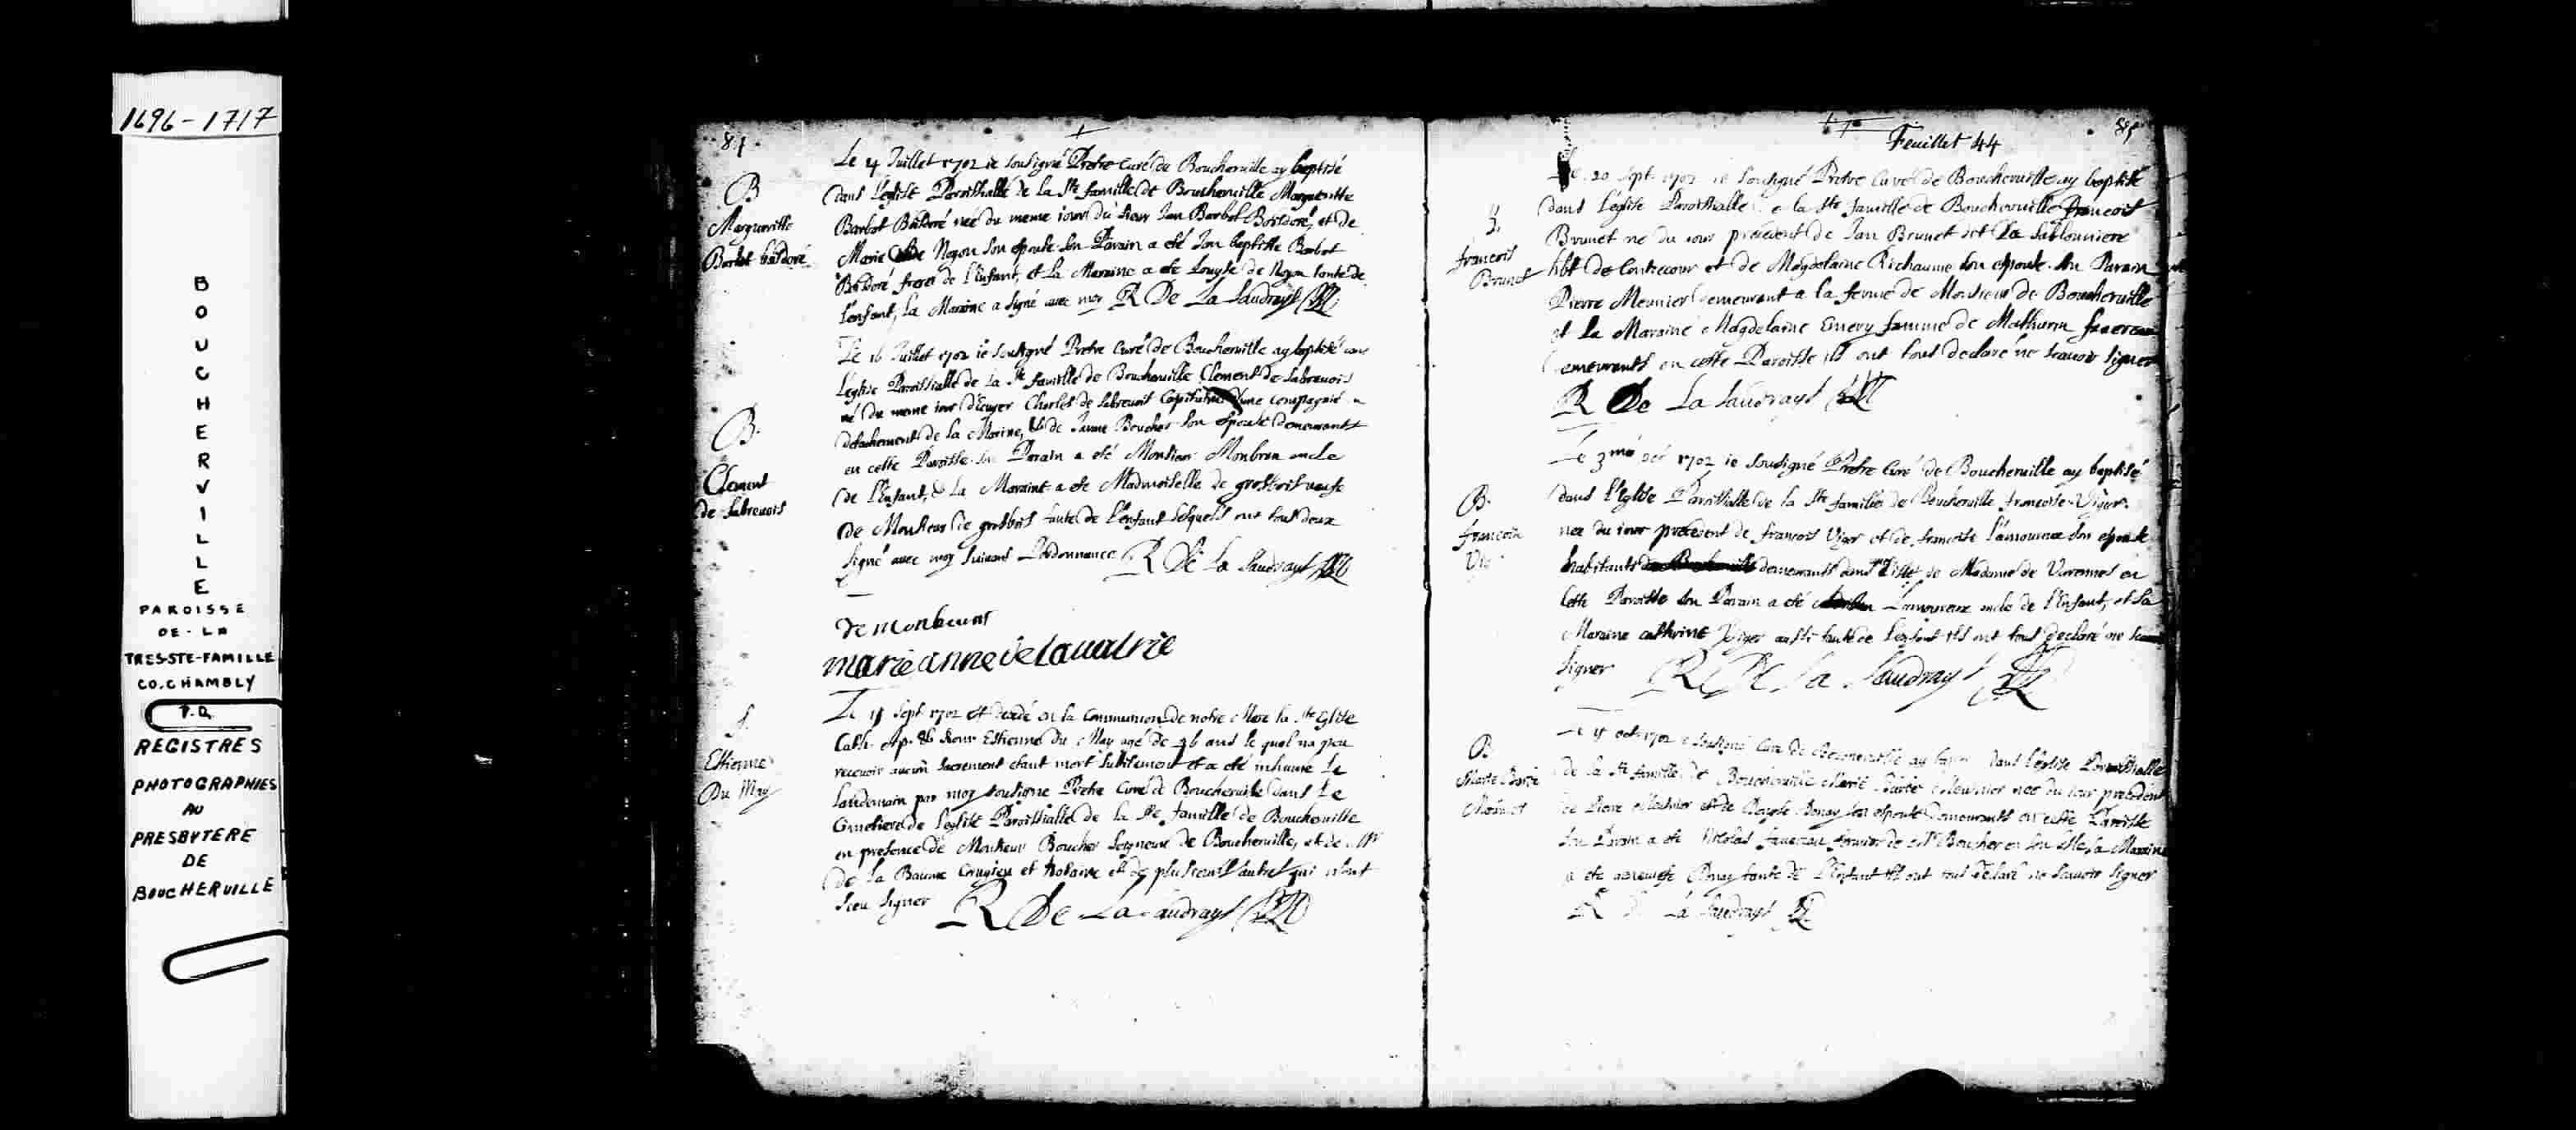 1696-1717
BOUCHERVILLE
PAROISSE
DE-LA
TRES-STE-FAMILLE
CO. CHAMBLY
P.Q.
REGISTRES
PHOTOGRAPHIES
AU
PRESBYTERE
DE
BOUCHERVILLE
Le 4 Juillet 1702 ie sousigné Pretre Curé de Boucherville ay baptisé
B
dans l'eglise Paroissialle de la Ste famille de Boucherville Margueritte
Margueritte
Barbot née du meme iour du sieur Jan Barbot et de
Barbot
Marie de Noyon son epouse son Parain a eté Jan baptiste Barbot
frere de l'Enfant, et la Maraine a ete Louyse de Noyon tante de
l'enfant, la Maraine a signé avec moy R De La Saudrays
Le 16 Juillet 1702 ie sousigné Pretre Curé de Boucherville ay baptisé
l'eglise Paroissialle de la Ste famille de Boucherville Clement de Sabrevois
né du meme iour d'Ecuyer Charles de Sabrevois Capitaine d'une compagnie
B.
detachement de la Marine, et de Jeanne Boucher son epouse demeurants
en cette Paroisse son Parain a eté Monsieur Monbrun oncle
Clement
de Sabrevois
de l'Enfant, & la Maraine a ete Madmoiselle de grosbois veufe
de Monsieur de grosbois tante de l'enfant lesquels ont tous deux
signé avec moy suivant l'ordonnance R De La Saudrays
de monbrun
marie anne de Lavaltrie
Sept 1702 est decedé en la Communion de notre Mere la Ste Eglise
S.
Cath. Ap. & sieur Estienne du May agé de ans le quel na peu
Estienne
Du May
recevoir aucun sacrement etant mort subitement et a eté inhumé le
landemain par moy sousigné Pretre Curé de Boucherville dans le
Cimetiere de l'eglise Paroissialle de la Ste famille de Boucherville
en presence de Monsieur Boucher Seigneur de Boucherville, et de Mr
de la Baume Cirugien et Notaire et de plusieurs autres qui n'ont
sceu signer R De La Saudrays
Feuillet 44
Le 20 Sept. 1702 ie sousigné Pretre Curé de Boucherville ay baptisé
dans l'eglise Paroissialle de la Ste famille de Boucherville francois
francois
Brunet
Brunet né du iour precedent de Jan Brunet dit La Sablonniere
hbt de Contrecour et de Magdelaine Richaume son epouse. son Parain
Pierre Meunier demeurant a la ferme de Monsieur de Boucherville
et la Maraine Magdelaine Emery famme de Mathurin favereau
demeurants en cette Paroisse ils ont tous declaré ne scavoir signer
R De La Saudrays
Le 3me oct 1702 ie sousigné Pretre Curé de Boucherville ay baptisé
B.
dans l'Eglise Paroissialle de la Ste famille de Boucherville francoise Viger
francoise
née du iour precedent de francois Viger et de francoise Lamoureux son epouse
habitants demeurants dans l'Isle de Madame de Varennes en
cette Paroisse son Parain a eté Lamoureux oncle de l'Enfant, et la
Maraine cathrine Viger aussi tante de l'enfant ils ont tous declaré ne
signer R De La Saudrays
B
oct 1702 sousigné Curé de Boucherville ay dans l'eglise Paroissialle
Marie
de la Ste famille de Boucherville Marie Meunier née du iour precedent
de Piere Meunier et de son epouse demeurants en cette Paroisse
son Parain a ete Nicolas favereau fermier de Mr Boucher en son Isle, la Maraine
a ete tante de l'Enfant ils ont tous declaré ne scavoir signer
R De La Saudrays